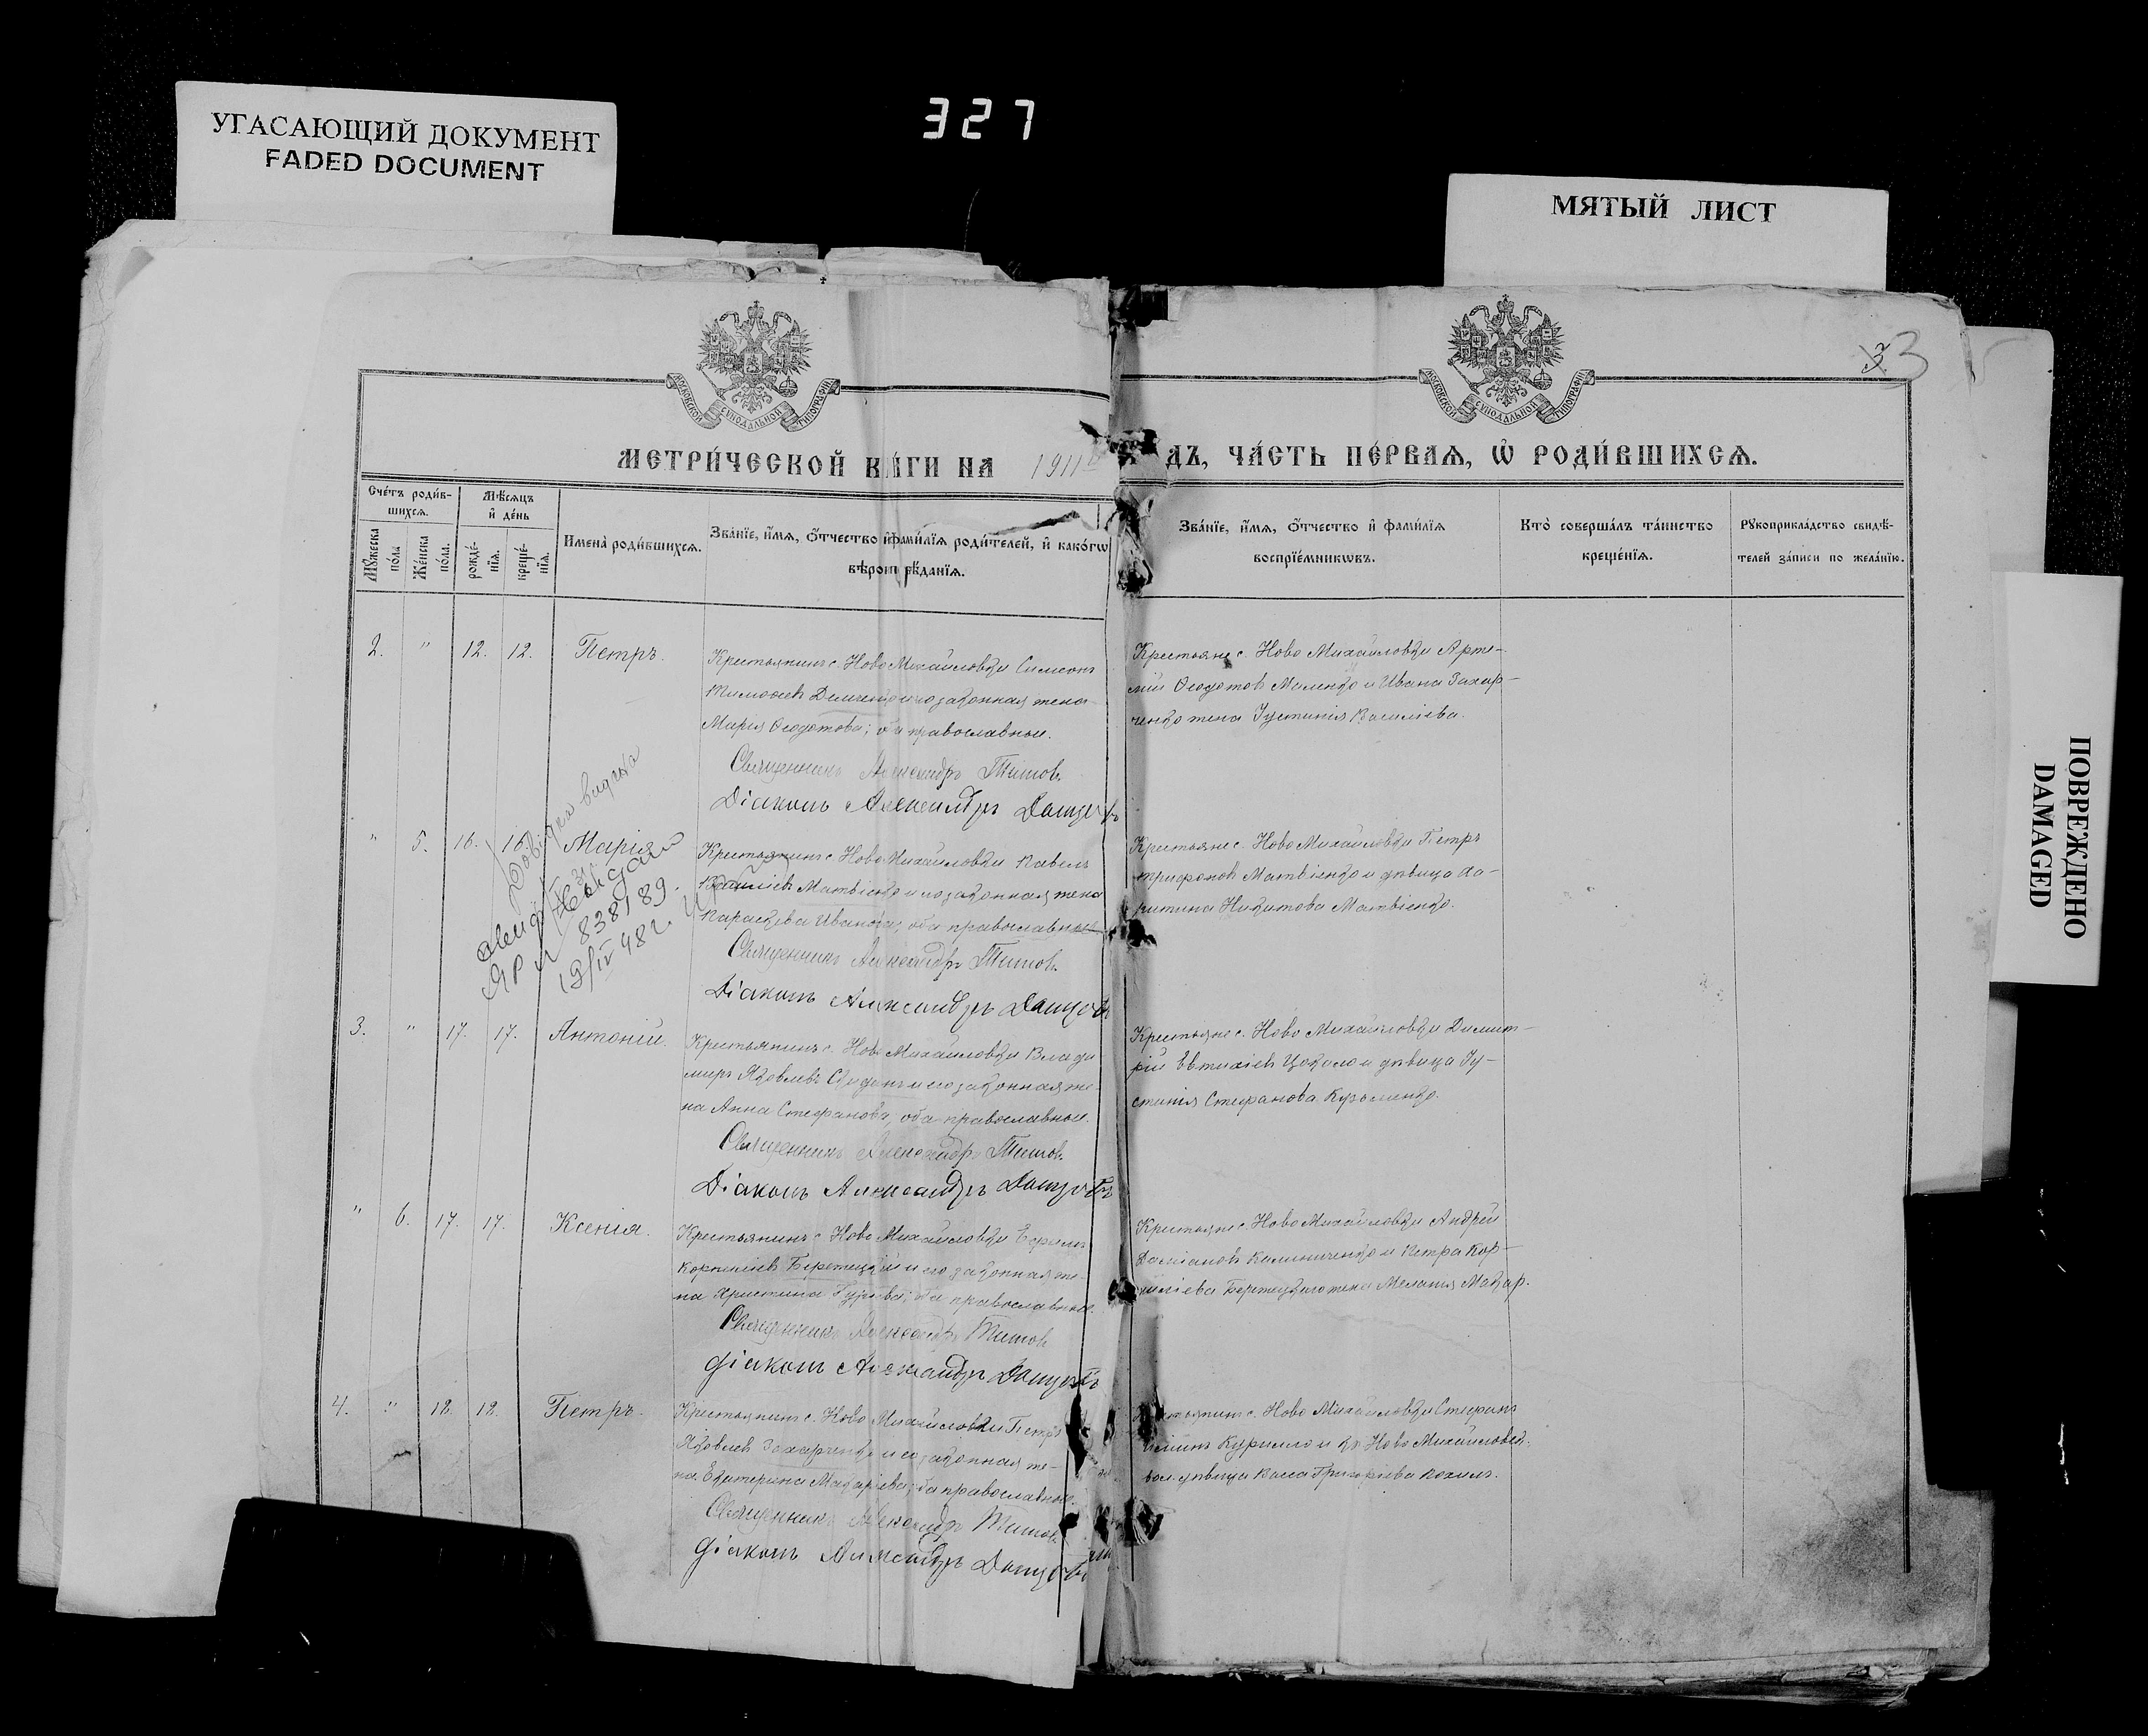 327
УГАСАЮЩИЙ ДОКУМЕНТ
FADED DOCUMENT
МЯТЫЙ ЛИСТ
ПОВРЕЖДЕНО
DAMAGED
3
МОСКОВСКОЙ СѴНОДАЛЬНОЙ ТИПОГРАФІИ
МОСКОВСКОЙ СѴНОДАЛЬНОЙ ТИПОГРАФІИ
МЕТРИ́ЧЕСКОЙ КНИ́ГИ НА 1911 ДЪ, ЧА́СТЬ ПЕ́РВАѦ, Ѡ҆ РОДИ́ВШИХСѦ.
Сче́тъ роди́в-
шихсѧ.
Мꙋ́жеска по́ла
Же́нска по́ла.
Мѣ́сѧцъ
и҆ де́нь
рожде́-
нїѧ.
креще́-
нїѧ.
Имена̀ роди́вшихсѧ.
Зва́нїе, и҆́мѧ, ѻ҆́тчество и҆ фами́лїѧ роди́телей, и҆ како́гѡ
вѣроисповѣ́данїѧ.
Зва́нїе, и҆́мѧ, ѻ҆́тчество и҆ фами́лїѧ
воспрїе́мникѡвъ.
Кто̀ соверша́лъ та́инство
креще́нїѧ.
Рꙋкоприкла́дство свидѣ́-
телей за́писи по жела́нїю.
2. " 12. 12. Петръ.
Крестьянинъ с. Ново Михайловки Симеонъ
Тимоѳеевъ Демченко и его законная жена
Марія Ѳеодотова; оба православные.
Священникъ Александръ Титовъ
Діаконъ Александръ Донцовъ
Крестьяне с. Ново Михайловки Арте-
мій Ѳеодотовъ Маленко и Ивана Захар-
ченко жена Іустинія Василіева.
" 5. 16. 16. Марія
Крестьянинъ с. Ново Михайловки Павелъ
Василіевъ Матвіенко и его законная жена
Параскева Иванова; оба православные
Священникъ Александръ Титовъ
Діаконъ Александръ Донцовъ
Крестьяне с. Ново Михайловки Петръ
Трифоновъ Матвіенко и дѣвица Ха-
ритина Никитова Матвіенко.
Довідка видана
838189
12/IV 48 г.
3. " 17. 17. Антоній.
Крестьянинъ с. Ново Михайловки Влади
миръ Яковлевъ и его законная же-
на Анна Стефанова, оба православные.
Священникъ Александръ Титовъ
Діаконъ Александръ Донцовъ
Крестьяне с. Ново Михайловки Димит-
рій Евтихіевъ Цоколо и дѣвица Іу-
стинія Стефанова Кузьменко.
" 6. 17. 17. Ксенія.
Крестьянинъ с. Ново Михайловки Ефремъ
Корниліевъ Бережецкій и его законная же-
на Христина Гуріева; оба православные.
Священникъ Александръ Титовъ
Діаконъ Александръ Донцовъ
Крестьяне с. Ново Михайловки Андрей
Даміановъ Калиниченко и Петра Кор-
ниліева Бережецкаго жена Меланія Макар.
4. " 18. 18. Петръ.
Крестьянинъ с. Ново Михайловки Петръ
Яковлевъ Захарченко и его законная же-
на Екатерина Макаріева; оба православные.
Священникъ Александръ Титовъ
Діаконъ Александръ Донцовъ
с. Ново Михайловки Стефанъ
Курилло и Ново Михайловск.
вол. дѣвица Васса Григоріева